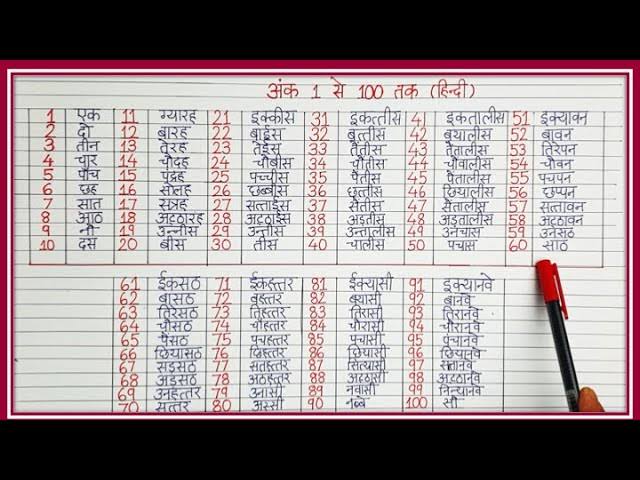 अंक 1 से 100 तक (हिन्दी)
1 एक 11 ग्यारह 21 इक्कीस 31 इकत्तीस 41 इकतालीस 51 इक्यावन
2 दो 12 बारह 22 बाईस 32 बत्तीस 42 बयालीस 52 बावन
3 तीन 13 तेरह 23 तेईस 33 तैंतीस 43 तैतालीस 53 तिरेपन
4 चार 14 चौदह 24 चौबीस 34 चौंतीस 44 चौवालीस 54 चौवन
5 पाँच 15 पंद्रह 25 पच्चीस 35 पैंतीस 45 पैतालीस 55 पचपन
6 छह 16 सोलह 26 छब्बीस 36 छत्तीस 46 छियालीस 56 छप्पन
7 सात 17 सत्रह 27 सत्ताईस 37 सैंतीस 47 सैतालीस 57 सत्तावन
8 आठ 18 अट्ठारह 28 अट्ठाईस 38 अड़तीस 48 अड़तालीस 58 अट्ठावन
9 नौ 19 उन्नीस 29 उन्तीस 39 उन्तालीस 49 उनचास 59 उनसठ
10 दस 20 बीस 30 तीस 40 चालीस 50 पचास 60 साठ
61 ईकसठ 71 ईकहत्तर 81 ईक्यासी 91 इक्यानवे
62 बासठ 72 बहत्तर 82 बयासी 92 बानवे
63 तिरसठ 73 तिहत्तर 83 तिरासी 93 तिरानवे
64 चौसठ 74 चौहत्तर 84 चौरासी 94 चौरानवे
65 पैंसठ 75 पचहत्तर 85 पचासी 95 पंचानवे
66 छियासठ 76 छिहत्तर 86 छियासी 96 छियानवे
67 सड़सठ 77 सतहत्तर 87 सित्यासी 97 सतानवे
68 अड़सठ 78 अठहत्तर 88 अट्ठासी 98 अट्ठानवे
69 उनहत्तर 79 उनासी 89 नवासी 99 निन्यानवे
70 सत्तर 80 अस्सी 90 नब्बे 100 सौ